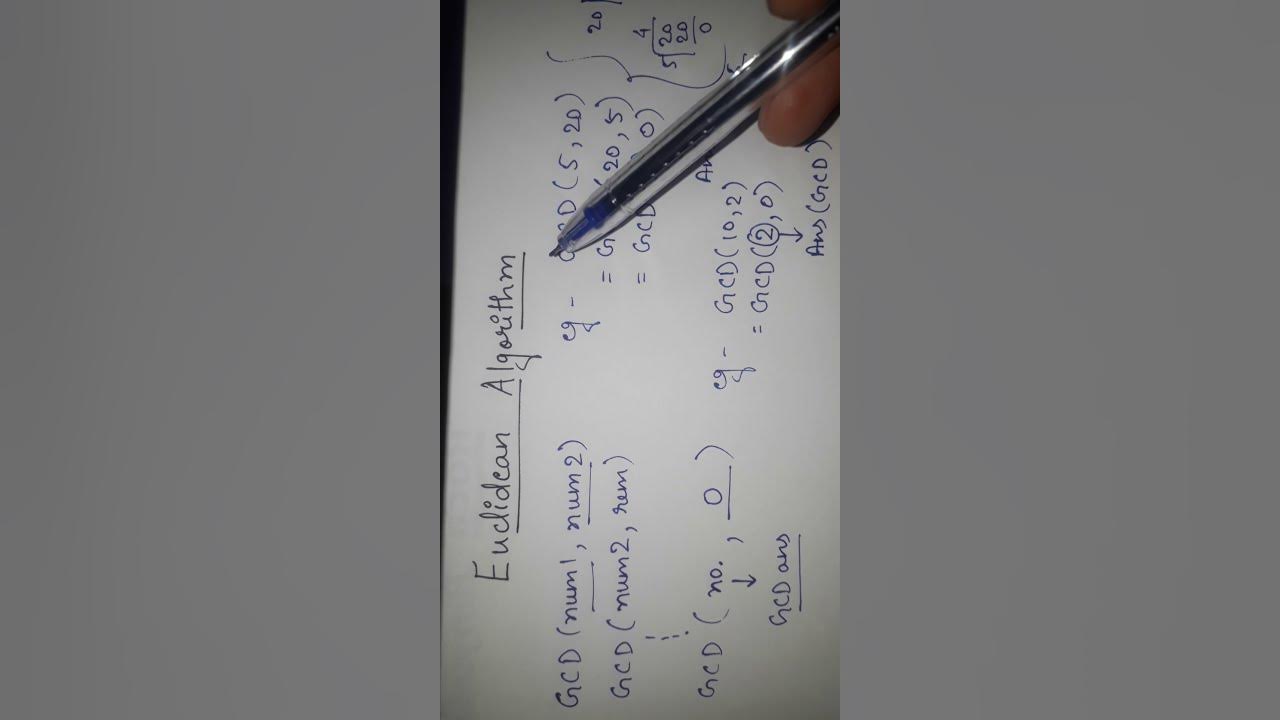 Euclidean Algorithm
GCD (num1, num2)
GCD (num2, rem)
GCD ( no. , 0 )
GCD ans
eg - GCD (5, 20)
= (20, 5)
= GCD 0)
20
4
5 20
20
0
eg - GCD (10, 2)
= GCD (2, 0)
Ans (GCD)